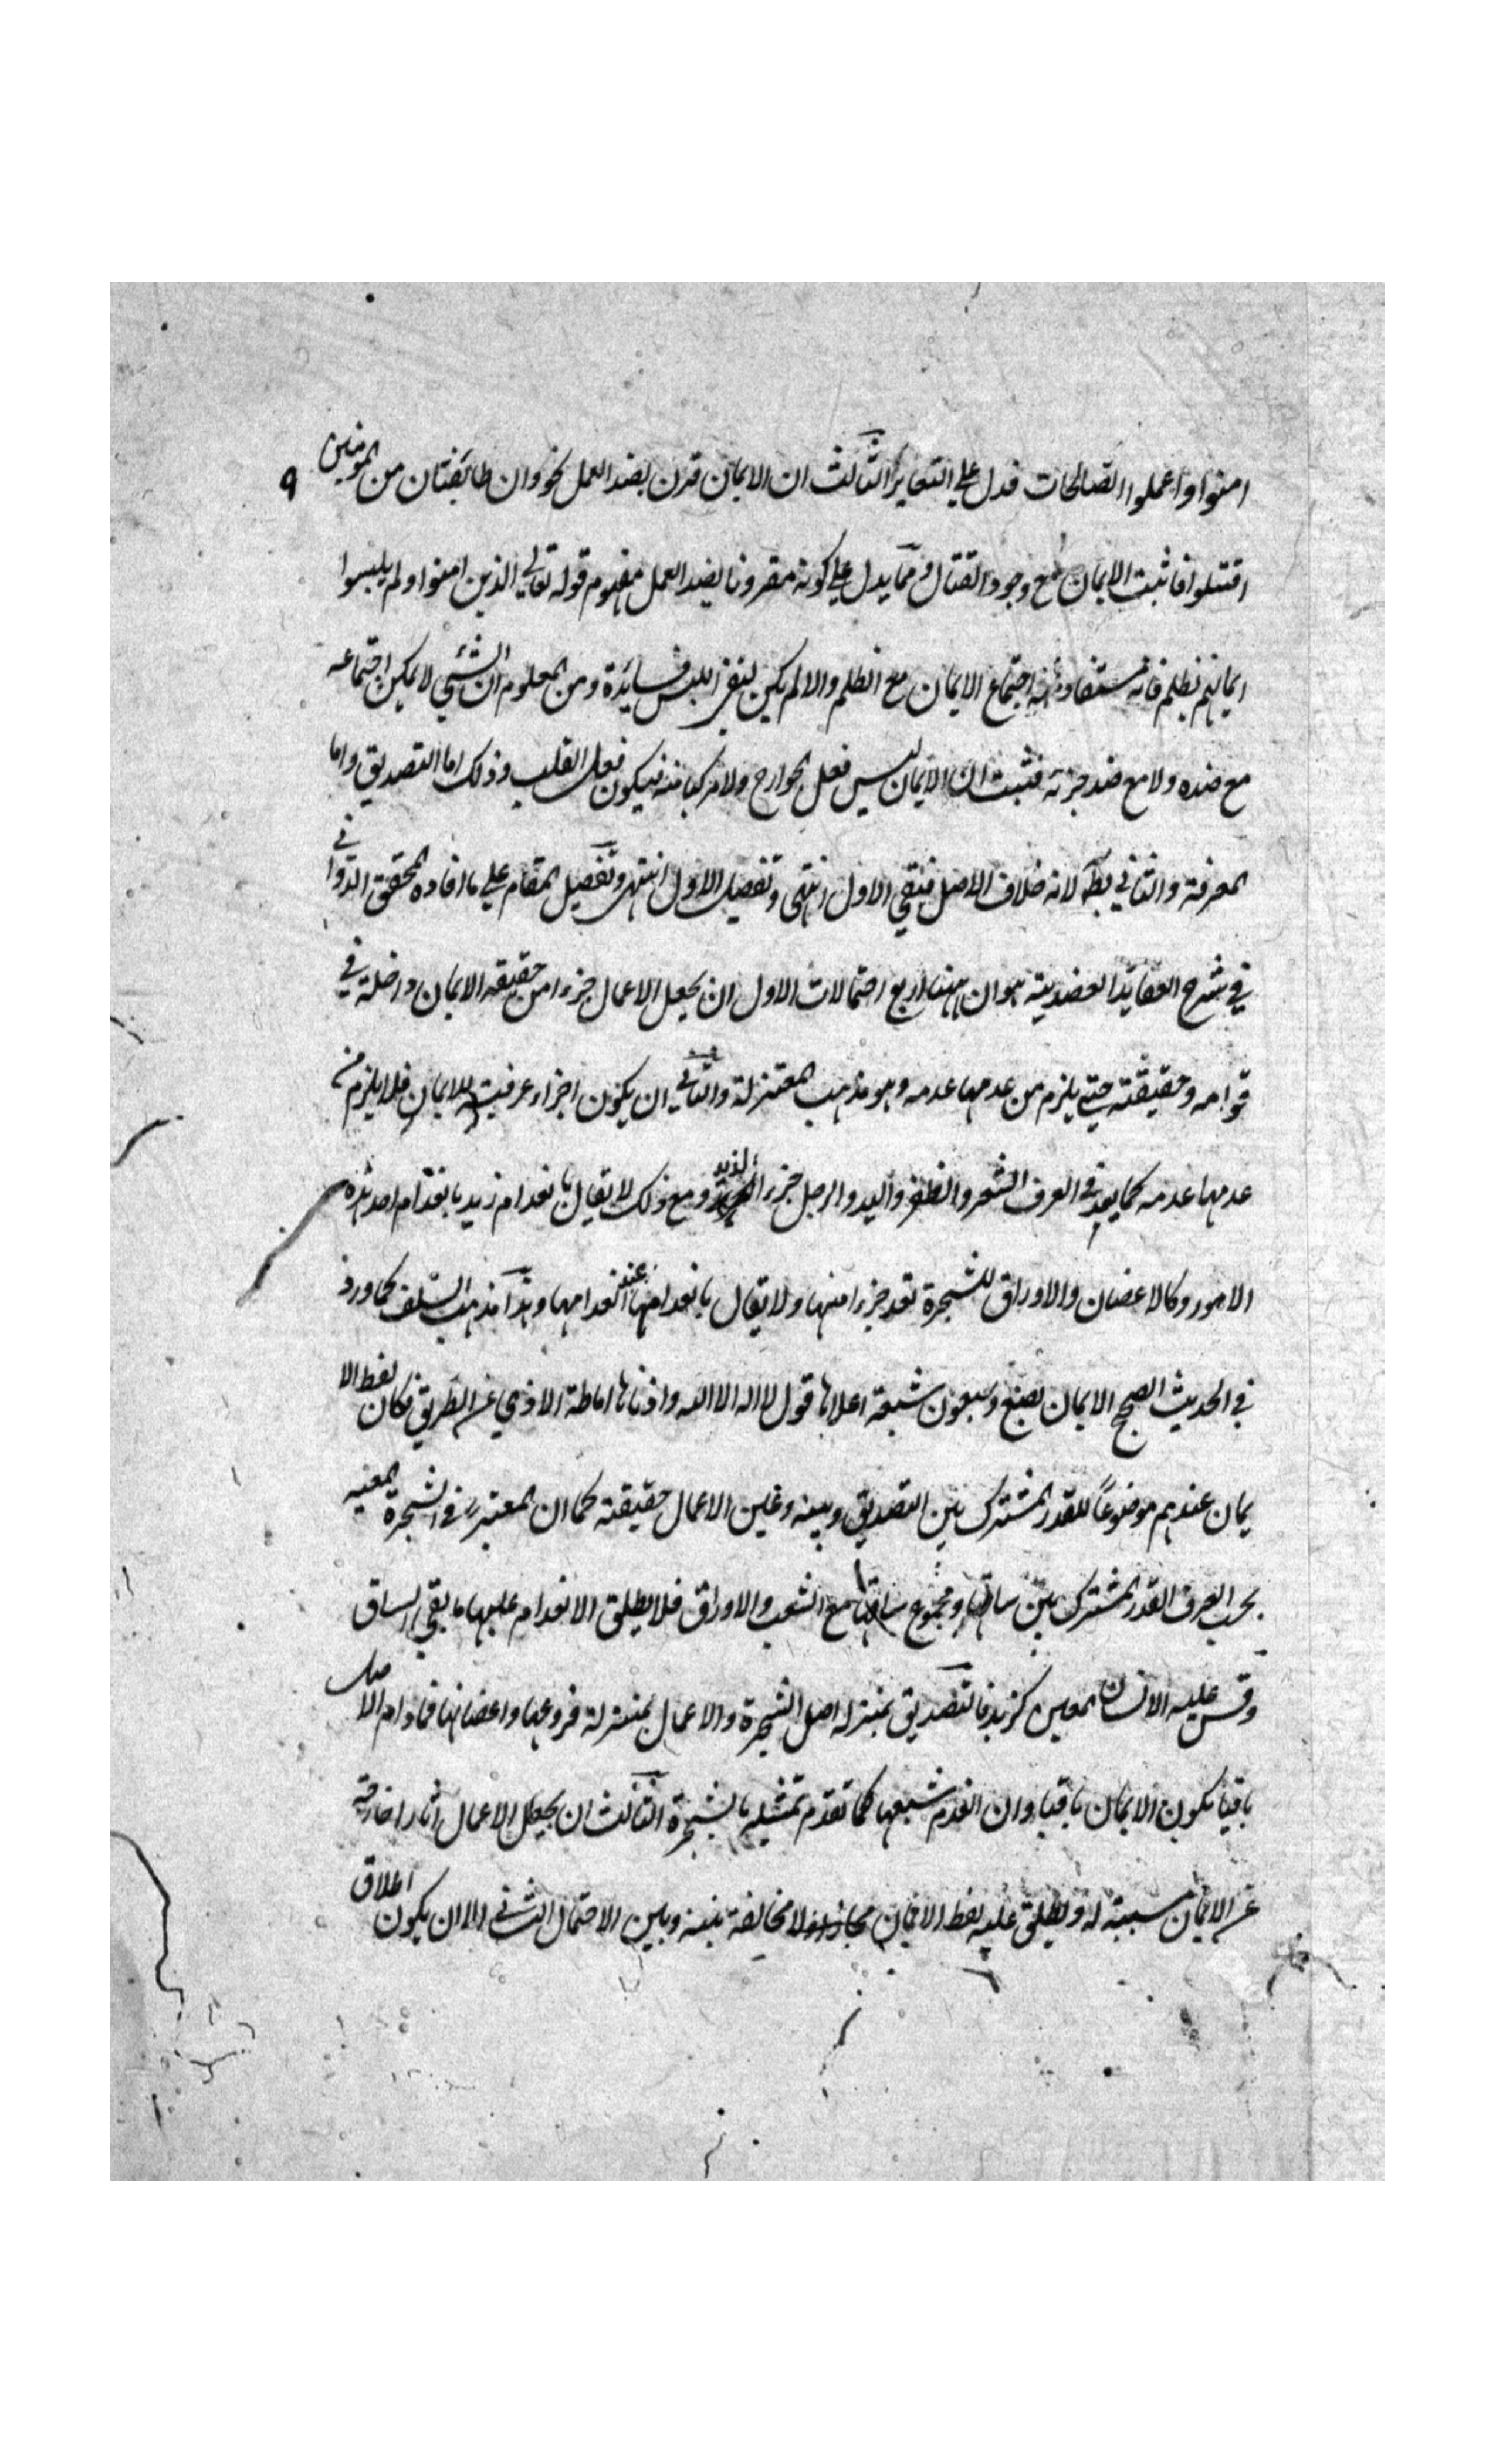 امنوا وا عملوا الصالحات فدل علي التغاير الثالث ان الايمان قرن بضد العمل نحو وان طائفتان من المومنين ٩
اقتتلوا فاثبت الايمان مع وجود القتال و مما يدل علي كونه مقرونا بضد العمل مفهوم قوله تعالي الذين امنوا ولم يلبسوا
ايمانهم بظلم فانه مستفاد منه اجتماع الايمان مع الظلم والا لم يكن لنفي اللبس فائدة ومن المعلوم ان الشيئ لا يمكن اجتماعه
مع ضده ولا مع ضد جزئه فثبت ان الايمان ليس فعل الجوارح ولا مركبا منه فيكون فعل القلب وذلك اما التصديق واما
المعرفة والثاني بط لانه خلاف الاصل فبقي الاول انتهي وتفصيل الاول انتهي وتفصيل المقام علي ما افاده المحقق الدواني
في شرح العقايد العضدية هو ان ههنا اربع احتمالات الاول ان يجعل الاعمال جزءا من حقيقه الايمان داخلة في
قوامه وحقيقته حتي يلزم من عدمها عدمه وهو مذهب المعتزلة والثاني ان يكون اجزاء عرفيه للايمان فلا يلزم من
عدمها عدمه كما يعد في العرف الشعر والظفر واليد والرجل جزء الزيد ومع ذلك لا يقال بانعدام زيد بانعدام احد هذه
الامور وكالاغصان والاوراق للشجرة تعد جزءا منها ولا يقال بانعدامها عند انعدامها وهذا مذهب السلف كما ورد
في الحديث الصحيح الايمان بضع وسبعون شبعة اعلاها قول لا اله الا الله وادناها اماطة الاذي عن الطريق فكان لفظ الا
يمان عندهم موضوعاً للقدر المشترك بين التصديق وبينه وبين الاعمال حقيقته كما ان المعتبر في الشجرة المعينه
بحسب العرف القدر المشترك بين ساقها ومجموع ساقها مع الشعب والاوراق فلا يطلق الانعدام عليها ما بقي الساق
وقس عليه الانسان المعين كزيد فالتصديق بمنزله اصل الشجرة والاعمال بمنزلة فروعها واغصانها فمادام الاصل
باقيا يكون الايمان باقيا وان انعدم شبعها كما تقدم تمثيله بالشجرة الثالث ان يجعل الاعمال اثارا خارجة
عن الايمان مسببة له ويطلق عليه لفظ الايمان مجازا ولا مخالفة بينه وبين الاحتمال الثاني الا ان يكون اطلاق